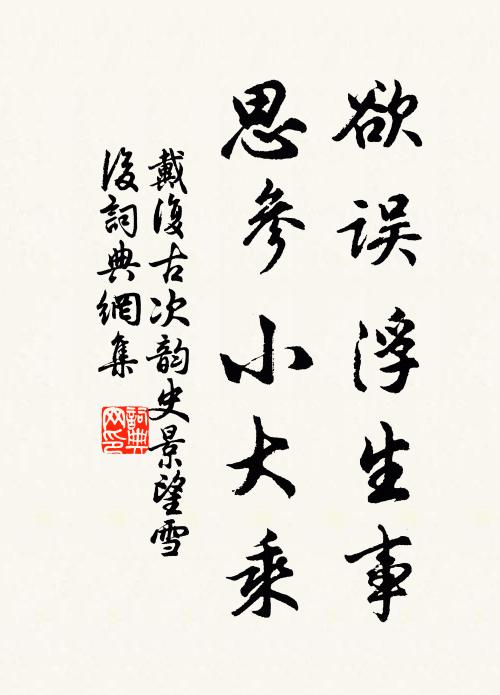 欲误浮生事
思參小大乘
戴復古次韵史景望雪
後詞典網集
詞典
网印